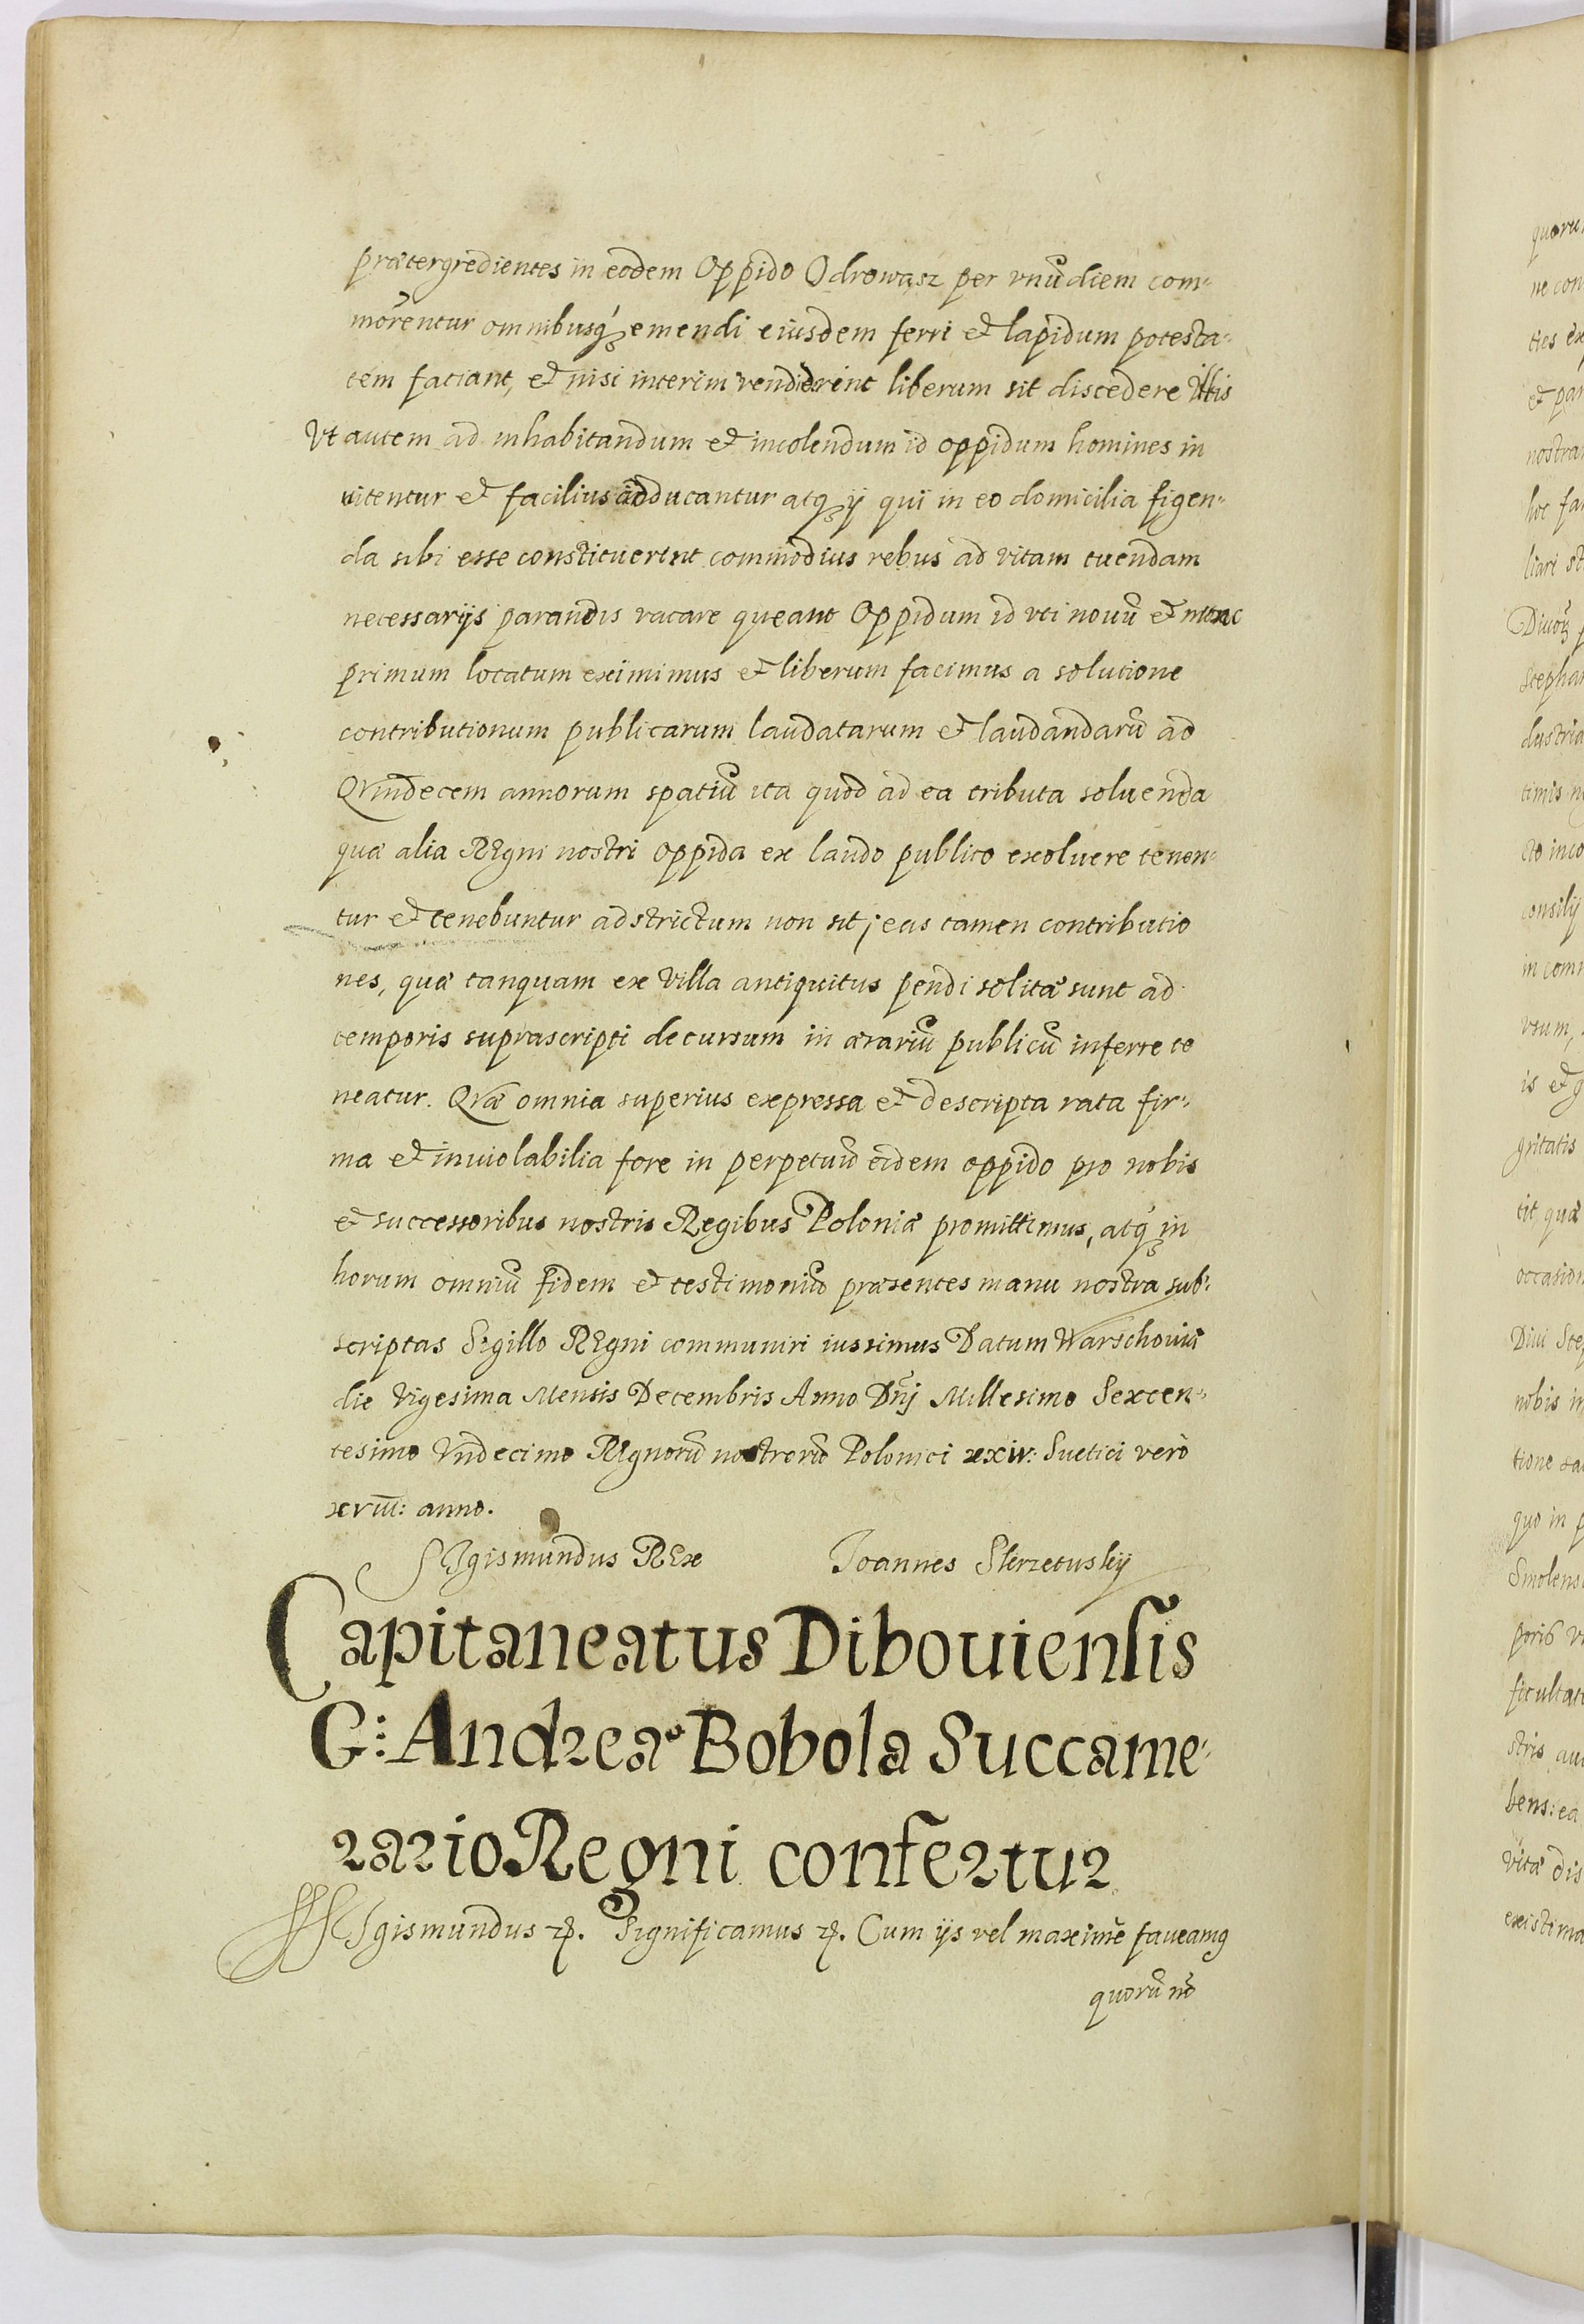 prætergredientes in eodem Oppido Odrowąsz per vnũ diem com-
morentur omnibusq₃ emendi eiusdem ferri et lapidum potesta-
tem faciant, et nisi interim vendiderint liberum sit discedere illis
Vt autem ad inhabitandum et incolendum id oppidum homines in
uitentur et facilius adducantur atq₃ ij qui in eo domicilia figen-
da sibi esse constituerint commodius rebus ad vitam tuendam
necessarijs parandis vacare queant Oppidum id vti nouũ et nunc
primum locatum eximimus et liberum facimus a solutione
contributionum publicarum laudatarum et laudandarũ ad
Quindecem annorum spatiũ ita quod ad ea tributa soluenda
quæ alia REgni nostri oppida ex laudo publico exoluere tenen-
tur et tenebuntur adstrictum non sit; eas tamen contributio
nes, quæ tanquam ex Villa antiquitus pendi solitæ sunt ad
temporis suprascripti decursum in ærariũ publicũ inferre te
neatur. Quæ omnia superius expressa et descripta rata fir-
ma et inuiolabilia fore in perpetuũ eidem oppido pro nobis
et successoribus nostris Regibus Poloniæ promittimus, atq₃ in
horum omniũ fidem et testimoniũ præsentes manu nostra sub-
scriptas Sigillo REgni communiri iussimus Datum Warschouiæ
die Vigesima Mensis Decembris Anno Dñj Millesimo Sexcen-
tesimo Vndecimo REgnorũ nostrorũ Polonici xxiv: Suetici verò
xviii: anno.
SIgismundus REx Joannes Skrzetuskij
Capitaneatus Dibouiensis
G: Andreæ Bobola Succame-
rario Regni confertur
SIgismundus ꝛc. Significamus ꝛc. Cum ijs vel maximè faueamꝰ
quorũ nõ
quoru
ne con
ties ex
et par
nostra
hoc fa
liari st
Diuor₃ p
Stepha
dustria
timis n
cto inco
consilij
in com
vsum,
is et g
gritatis
tit, quæ
occasion
Diui Step
nobis in
tione
quo in p
Smolens
poris v
ficultat
stris au
bens: ea
vitæ dis
existima